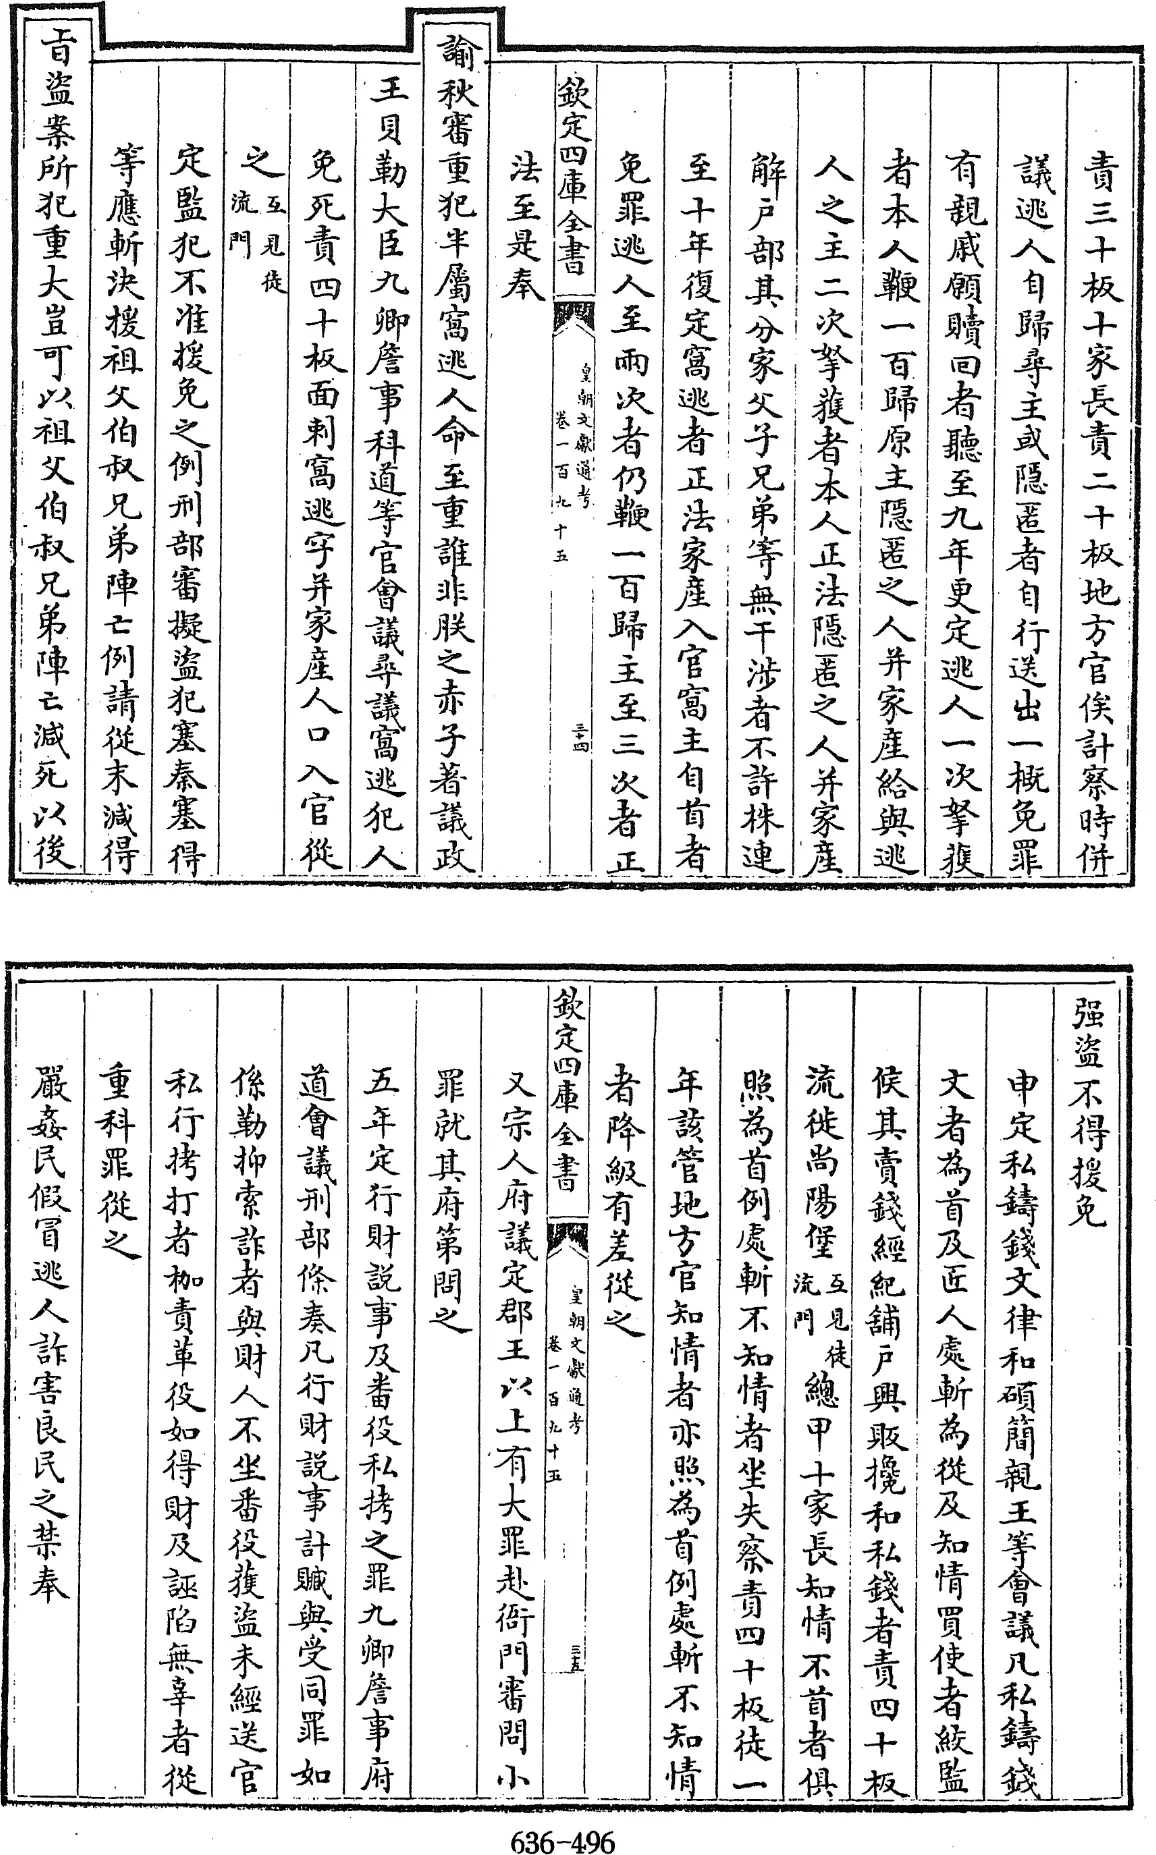 責三十板十家長責二十板地方官俟計察時併
議逃人自歸尋主或隠匿者自行送出一概免罪
有親戚願贖回者聽至九年更定逃人一次拏獲
者本人鞭一百歸原主隠匿之人并家産給與逃
人之主二次拏獲者本人正法隠匿之人并家産
解户部其分家父子兄弟等無干涉者不許株連
至十年復定窩逃者正法家産入官窩主自首者
免罪逃人至兩次者仍鞭一百歸主至三次者正
法至是奉
欽定四庫全書
皇朝文獻通考
卷一百九十五
三十四
諭秋審重犯半屬窩逃人命至重誰非朕之赤子著議政
王貝勒大臣九卿詹事科道等官會議尋議窩逃犯人
免死責四十板面刺窩逃字并家産人口入官從
之互見徒
流門
定監犯不准援免之例刑部審擬盜犯塞秦塞得
等應斬決援祖父伯叔兄弟陣亡例請從末減得
㫖盜案所犯重大豈可以祖父伯叔兄弟陣亡減死以後
强盜不得援免
申定私鑄錢文律和碩簡親王等會議凡私鑄錢
文者為首及匠人處斬為從及知情買使者絞監
候其賣錢經紀舖户興販攙和私錢者責四十板
流徙尚陽堡互見徒
流門總甲十家長知情不首者俱
照為首例處斬不知情者坐失察責四十板徒一
年該管地方官知情者亦照為首例處斬不知情
者降級有差從之
欽定四庫全書
皇朝文獻通考
卷一百九十五
三十五
又宗人府議定郡王以上有大罪赴衙門審問小
罪就其府第問之
五年定行財説事及番役私拷之罪九卿詹事府
道會議刑部條奏凡行財説事計贓與受同罪如
係勒抑索詐者與財人不坐番役獲盜未經送官
私行拷打者枷責革役如得財及誣陷無辜者從
重科罪從之
嚴姦民假冒逃人詐害良民之禁奉
636-496